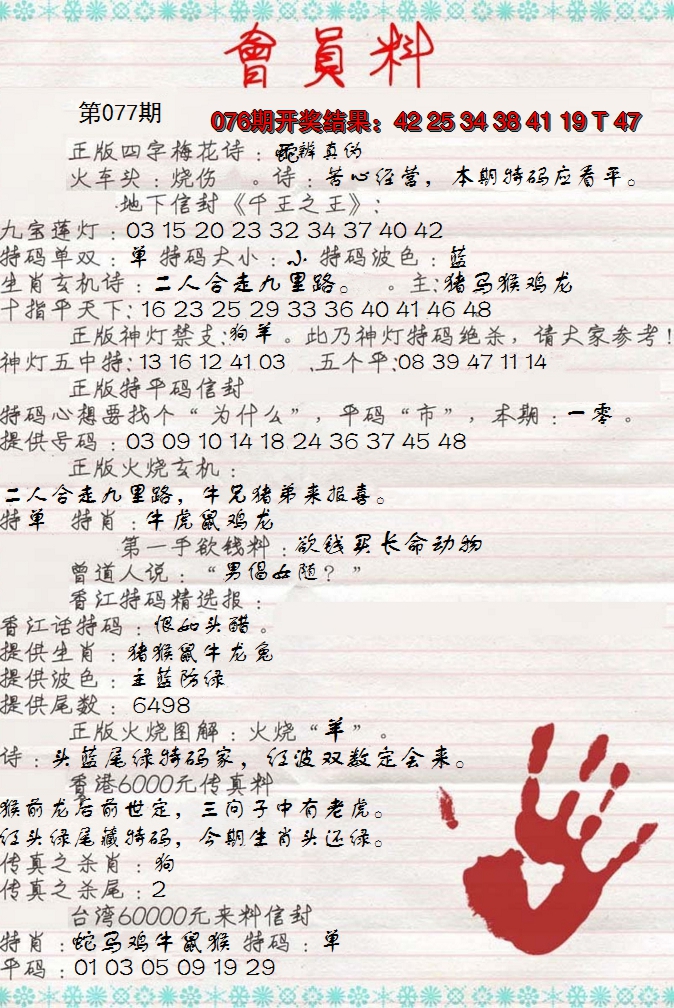 會員料
第077期
076期开奖结果：42 25 34 38 41 19 T 47
正版四字梅花诗：蛇辨真伪
火车头：烧伤 。诗：苦心经营，本期特码应看平。
地下信封《千王之王》：
九宝莲灯：03 15 20 23 32 34 37 40 42
特码单双：单 特码大小：小 特码波色：蓝
生肖玄机诗：二人合走九里路。 。主:猪马猴鸡龙
十指平天下: 16 23 25 29 33 36 40 41 46 48
正版神灯禁支:狗羊。此乃神灯特码绝杀，请大家参考!
神灯五中特:13 16 12 41 03 .五个平:08 39 47 11 14
正版特平码信封
特码心想要找个“为什么”，平码“市”，本期：一零。
提供号码：03 09 10 14 18 24 36 37 45 48
正版火烧玄机：
二人合走九里路，牛兄猪弟来报喜。
特单 特肖：牛虎鼠鸡龙
第一手欲钱料：欲钱买长命动物
曾道人说：“男倡女随？”
香江特码精选报：
香江话特码：俍如头醋。
提供生肖：猪猴鼠牛龙兔
提供波色：主蓝防绿
提供尾数：6498
正版火烧图解：火烧“羊”。
诗：头蓝尾绿特码家，红波双数定会来。
香港6000元传真料
猴前龙后前世定，三问子中有老虎。
红头绿尾藏特码，今期生肖头还绿。
传真之杀肖：狗
传真之杀尾：2
台湾60000元来料信封
特肖：蛇马鸡牛鼠猴 特码：单
平码：01 03 05 09 19 29